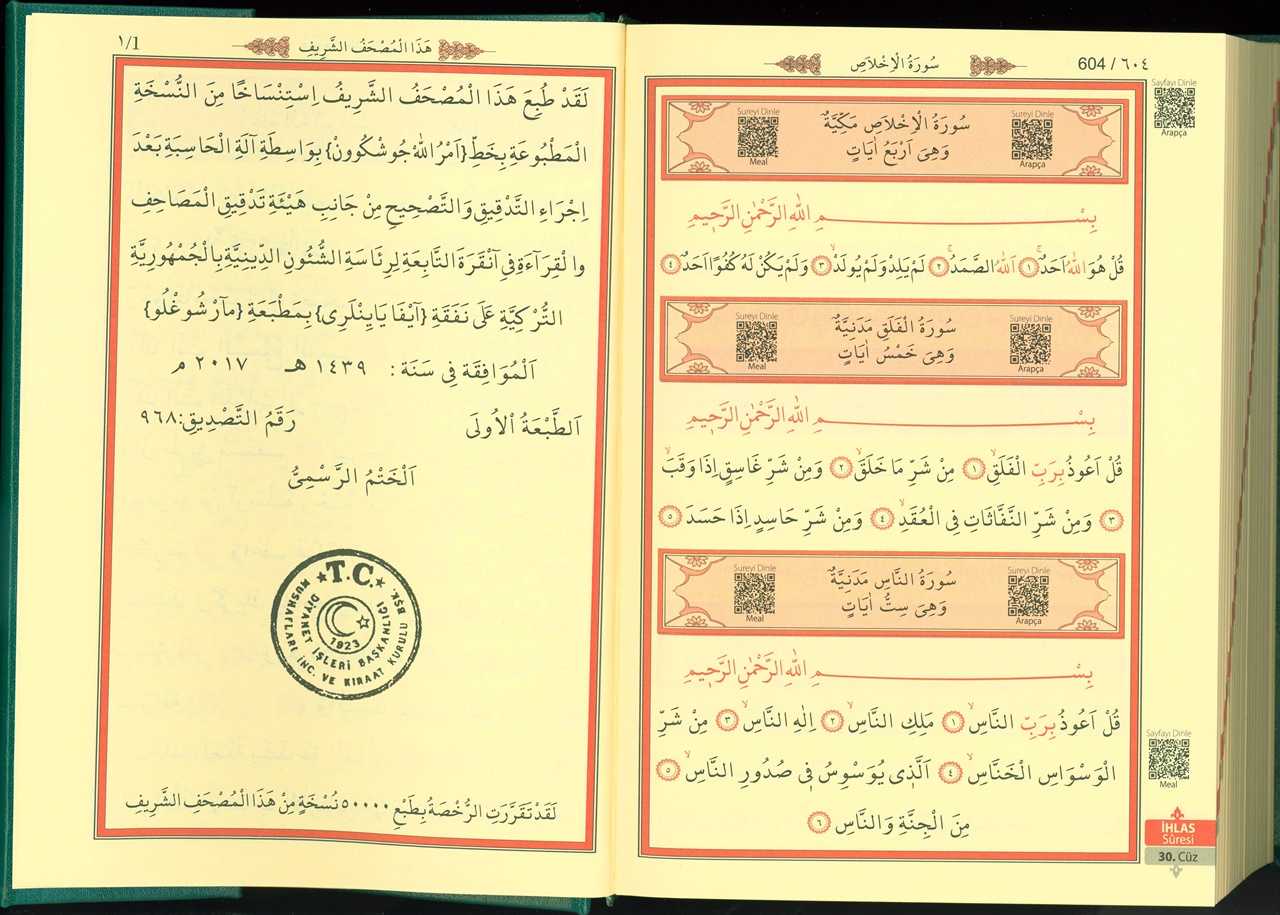 سُورَةُ الْاِخْلَاصِ
604 / ٦٠٤
Sayfayı Dinle
Arapça
Sureyi Dinle
Arapça
سُورَةُ الْاِخْلَاصِ مَكِّيَّةٌ
وَهِىَ اَرْبَعُ اٰيَاتٍ
Sureyi Dinle
Meal
بِسْمِ اللّٰهِ الرَّحْمٰنِ الرَّحٖيمِ
قُلْ هُوَ اللّٰهُ اَحَدٌۚ ١ اَللّٰهُ الصَّمَدُۚ ٢ لَمْ يَلِدْ وَلَمْ يُولَدْۙ ٣ وَلَمْ يَكُنْ لَهُ كُفُوًا اَحَدٌ ٤
Sureyi Dinle
Arapça
سُورَةُ الْفَلَقِ مَدَنِيَّةٌ
وَهِىَ خَمْسُ اٰيَاتٍ
Sureyi Dinle
Meal
بِسْمِ اللّٰهِ الرَّحْمٰنِ الرَّحٖيمِ
قُلْ اَعُوذُ بِرَبِّ الْفَلَقِۙ ١ مِنْ شَرِّ مَا خَلَقَۙ ٢ وَمِنْ شَرِّ غَاسِقٍ اِذَا وَقَبَۙ
٣ وَمِنْ شَرِّ النَّفَّاثَاتِ فِى الْعُقَدِۙ ٤ وَمِنْ شَرِّ حَاسِدٍ اِذَا حَسَدَ ٥
Sureyi Dinle
Arapça
سُورَةُ النَّاسِ مَدَنِيَّةٌ
وَهِىَ سِتُّ اٰيَاتٍ
Sureyi Dinle
Meal
بِسْمِ اللّٰهِ الرَّحْمٰنِ الرَّحٖيمِ
قُلْ اَعُوذُ بِرَبِّ النَّاسِۙ ١ مَلِكِ النَّاسِۙ ٢ اِلٰهِ النَّاسِۙ ٣ مِنْ شَرِّ
الْوَسْوَاسِ الْخَنَّاسِۙ ٤ اَلَّذٖى يُوَسْوِسُ فٖى صُدُورِ النَّاسِۙ ٥
مِنَ الْجِنَّةِ وَالنَّاسِ ٦
Sayfayı Dinle
Meal
İHLAS
Sûresi
30. Cüz
هَذَا الْمُصْحَفُ الشَّرِيفِ
١/1
لَقَدْ طُبِعَ هَذَا الْمُصْحَفُ الشَّرِيفُ اِسْتِنْسَاخًا مِنَ النُّسْخَةِ
الْمَطْبُوعَةِ بِخَطِّ {اَمْرُ اللّٰه جُوشْكُوون} بِوَاسِطَةِ آلَةِ الْحَاسِبَةِ بَعْدَ
اِجْرَاءِ التَّدْقِيقِ وَالتَّصْحِيحِ مِنْ جَانِبِ هَيْئَةِ تَدْقِيقِ الْمَصَاحِفِ
وَالْقِرَآءَةِ فِى آنْقَرَةَ التَّابِعَةِ لِرِئَاسَةِ الشُّئُونِ الدِّينِيَّةِ بِالْجُمْهُورِيَّةِ
التُّرْكِيَّةِ عَلَى نَفَقَةِ {آيْفَا يَايِنْلَرِى} بِمَطْبَعَةِ {مَآرْشُوغْلُو}
اَلْمُوَافِقَة فِى سَنَة : ١٤٣٩ هـ ٢٠١٧ م
اَلطَّبْعَةُ الْاُولَى رَقَمُ التَّصْدِيقِ:٩٦٨
اَلْخَتْمُ الرَّسْمِىُّ
T.C.
DİYANET İŞLERİ BAŞKANLIĞI
MUSHAFLARI İNC. VE KIRAAT KURULU BŞK.
1923
لَقَدْ تَقَرَّرَتِ الرُّخْصَةُ بِطَبْعِ ٥٠٠٠٠ نُسْخَةٍ مِنْ هَذَا الْمُصْحَفِ الشَّرِيفِ